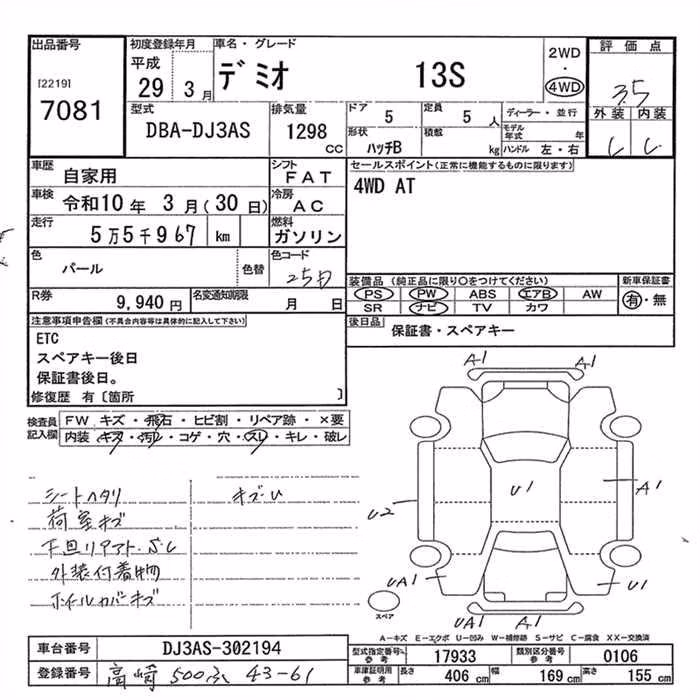 出品番号 初度登録年月 車名・グレード 評価点
平成
29 3月 デミオ 13S 2WD ・ 4WD 3.5
[2219]
7081
型式 排気量 ドア 定員 ディーラー・並行 外装 内装
DBA-DJ3AS 1298 CC 5 5人
形状 積載 モデル年式 年
ハッチB kg ハンドル 左・右 C C
車歴 自家用 シフト FAT セールスポイント(正常に機能するものに限ります)
車検 令和10年 3月(30日) 冷房 AC 4WD AT
走行 5万5千967 km 燃料 ガソリン
色 パール 色替 色コード 25D
装備品 (純正品に限り○をつけてください) 新車保証書
PS PW ABS エアB AW 有・無
SR ナビ TV カワ
R券 9,940円 名変通知期限 月 日
後日品 保証書・スペアキー
注意事項申告欄(不具合内容等は具体的に記入して下さい)
ETC
スペアキー後日
保証書後日。
修復歴 有〔箇所 〕
検査員記入欄 FW キズ・飛石・ヒビ割・リペア跡・×要
内装 キズ・汚レ・コゲ・穴・スレ・キレ・破レ
シートヘタリ キズ・U
荷室キズ
下回リサアト・S.C
外装付着物
ホイルカバキズ
A1 A1
U1 A1
U2
UA1 U1
UA1 A1
スペア
A－キズ E－エクボ U－凹み W－補修跡 S－サビ C－腐食 XX－交換済
車台番号 DJ3AS-302194 型式指定番号参考 17933 類別区分番号参考 0106
登録番号 高崎 500ふ 43-61 車庫証明用参考 長さ 406 cm 幅 169 cm 高さ 155 cm